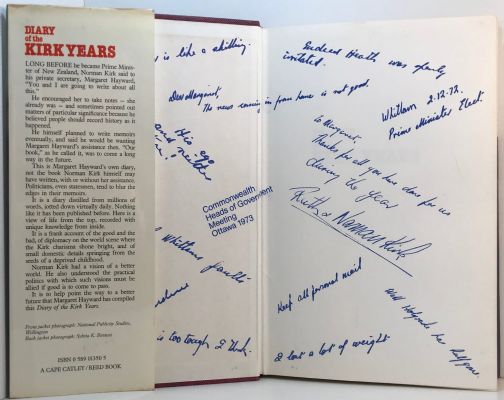 DIARY
of the
KIRK YEARS
LONG BEFORE he became Prime Minis-
ter of New Zealand, Norman Kirk said to
his private secretary, Margaret Hayward,
"You and I are going to write about all
this."
He encouraged her to take notes — she
already was — and sometimes pointed out
matters of particular significance because he
believed people should record history as it
happened.
He himself planned to write memoirs
eventually, and said he would be wanting
Margaret Hayward's assistance then. "Our
book," as he called it, was to come a long
way in the future.
This is Margaret Hayward's own diary,
not the book Norman Kirk himself may
have written, with or without her assistance.
Politicians, even statesmen, tend to blur the
edges in their memoirs.
It is a diary distilled from millions of
words, jotted down virtually daily. Nothing
like it has been published before. Here is a
view of life from the top, recorded with
unique knowledge from inside.
It is a frank account of the good and the
bad, of diplomacy on the world scene where
the Kirk charisma shone bright, and of
small domestic details springing from the
seeds of a deprived childhood.
Norman Kirk had a vision of a better
world. He also understood the practical
politics with which such visions must be
allied if good is to come to pass.
It is to help point the way to a better
future that Margaret Hayward has compiled
this Diary of the Kirk Years.
Front jacket photograph: National Publicity Studios,
Wellington
Back jacket photograph:
ISBN 0 589 01350 5
A CAPE CATLEY / REED BOOK
is like a shilling.
Dear Margaret,
The news coming in from home is not good.
His ego
and neither
Commonwealth
Heads of Government
Meeting
Ottawa 1973
Whitlams
is too tough I think.
Indeed Heath was openly
irritated.
Whitlam 2.12.72
Prime Minister Elect.
To Margaret,
Thanks for all you have done for us
during the year
Ruth & Norman Kirk
Keep all personal mail
Well Holyoake has
I lost a lot of weight